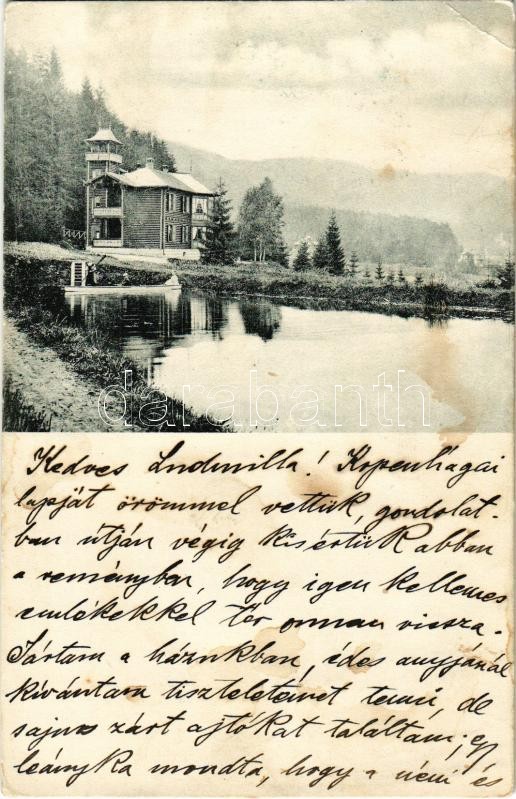 darabanth
Kedves Ludmilla! Kopenhágai
lapját örömmel vettük, gondolat-
ban útján végig kisértük abban
a reményben, hogy igen kellemes
emlékekkel tér onnan vissza.
Jártam a házukban, édes anyjánál
kivántam tiszteletemet tenni, de
sajnos zárt ajtókat találtam; egy
leányka mondta, hogy a néni és